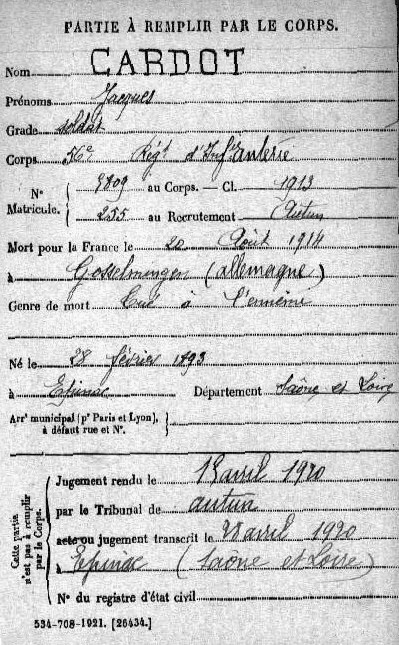 PARTIE À REMPLIR PAR LE CORPS.
Nom CARDOT
Prénoms Jacques
Grade soldat
Corps 56e Régt d'Infanterie
N° Matricule. { 3809 au Corps. — Cl. 1913
255 au Recrutement Autun
Mort pour la France le 20 Août 1914
à Gosselmingen (allemagne)
Genre de mort Tué à l'ennemi
Né le 28 février 1893
à Epinac Département Saône et Loire
Arrt municipal (pr Paris et Lyon), à défaut rue et N°. }
Cette partie n'est pas à remplir par le Corps.
Jugement rendu le 15 avril 1920
par le Tribunal de autun
acte ou jugement transcrit le 28 avril 1920
à Epinac (Saône et Loire)
N° du registre d'état civil
534-708-1921. [26434.]